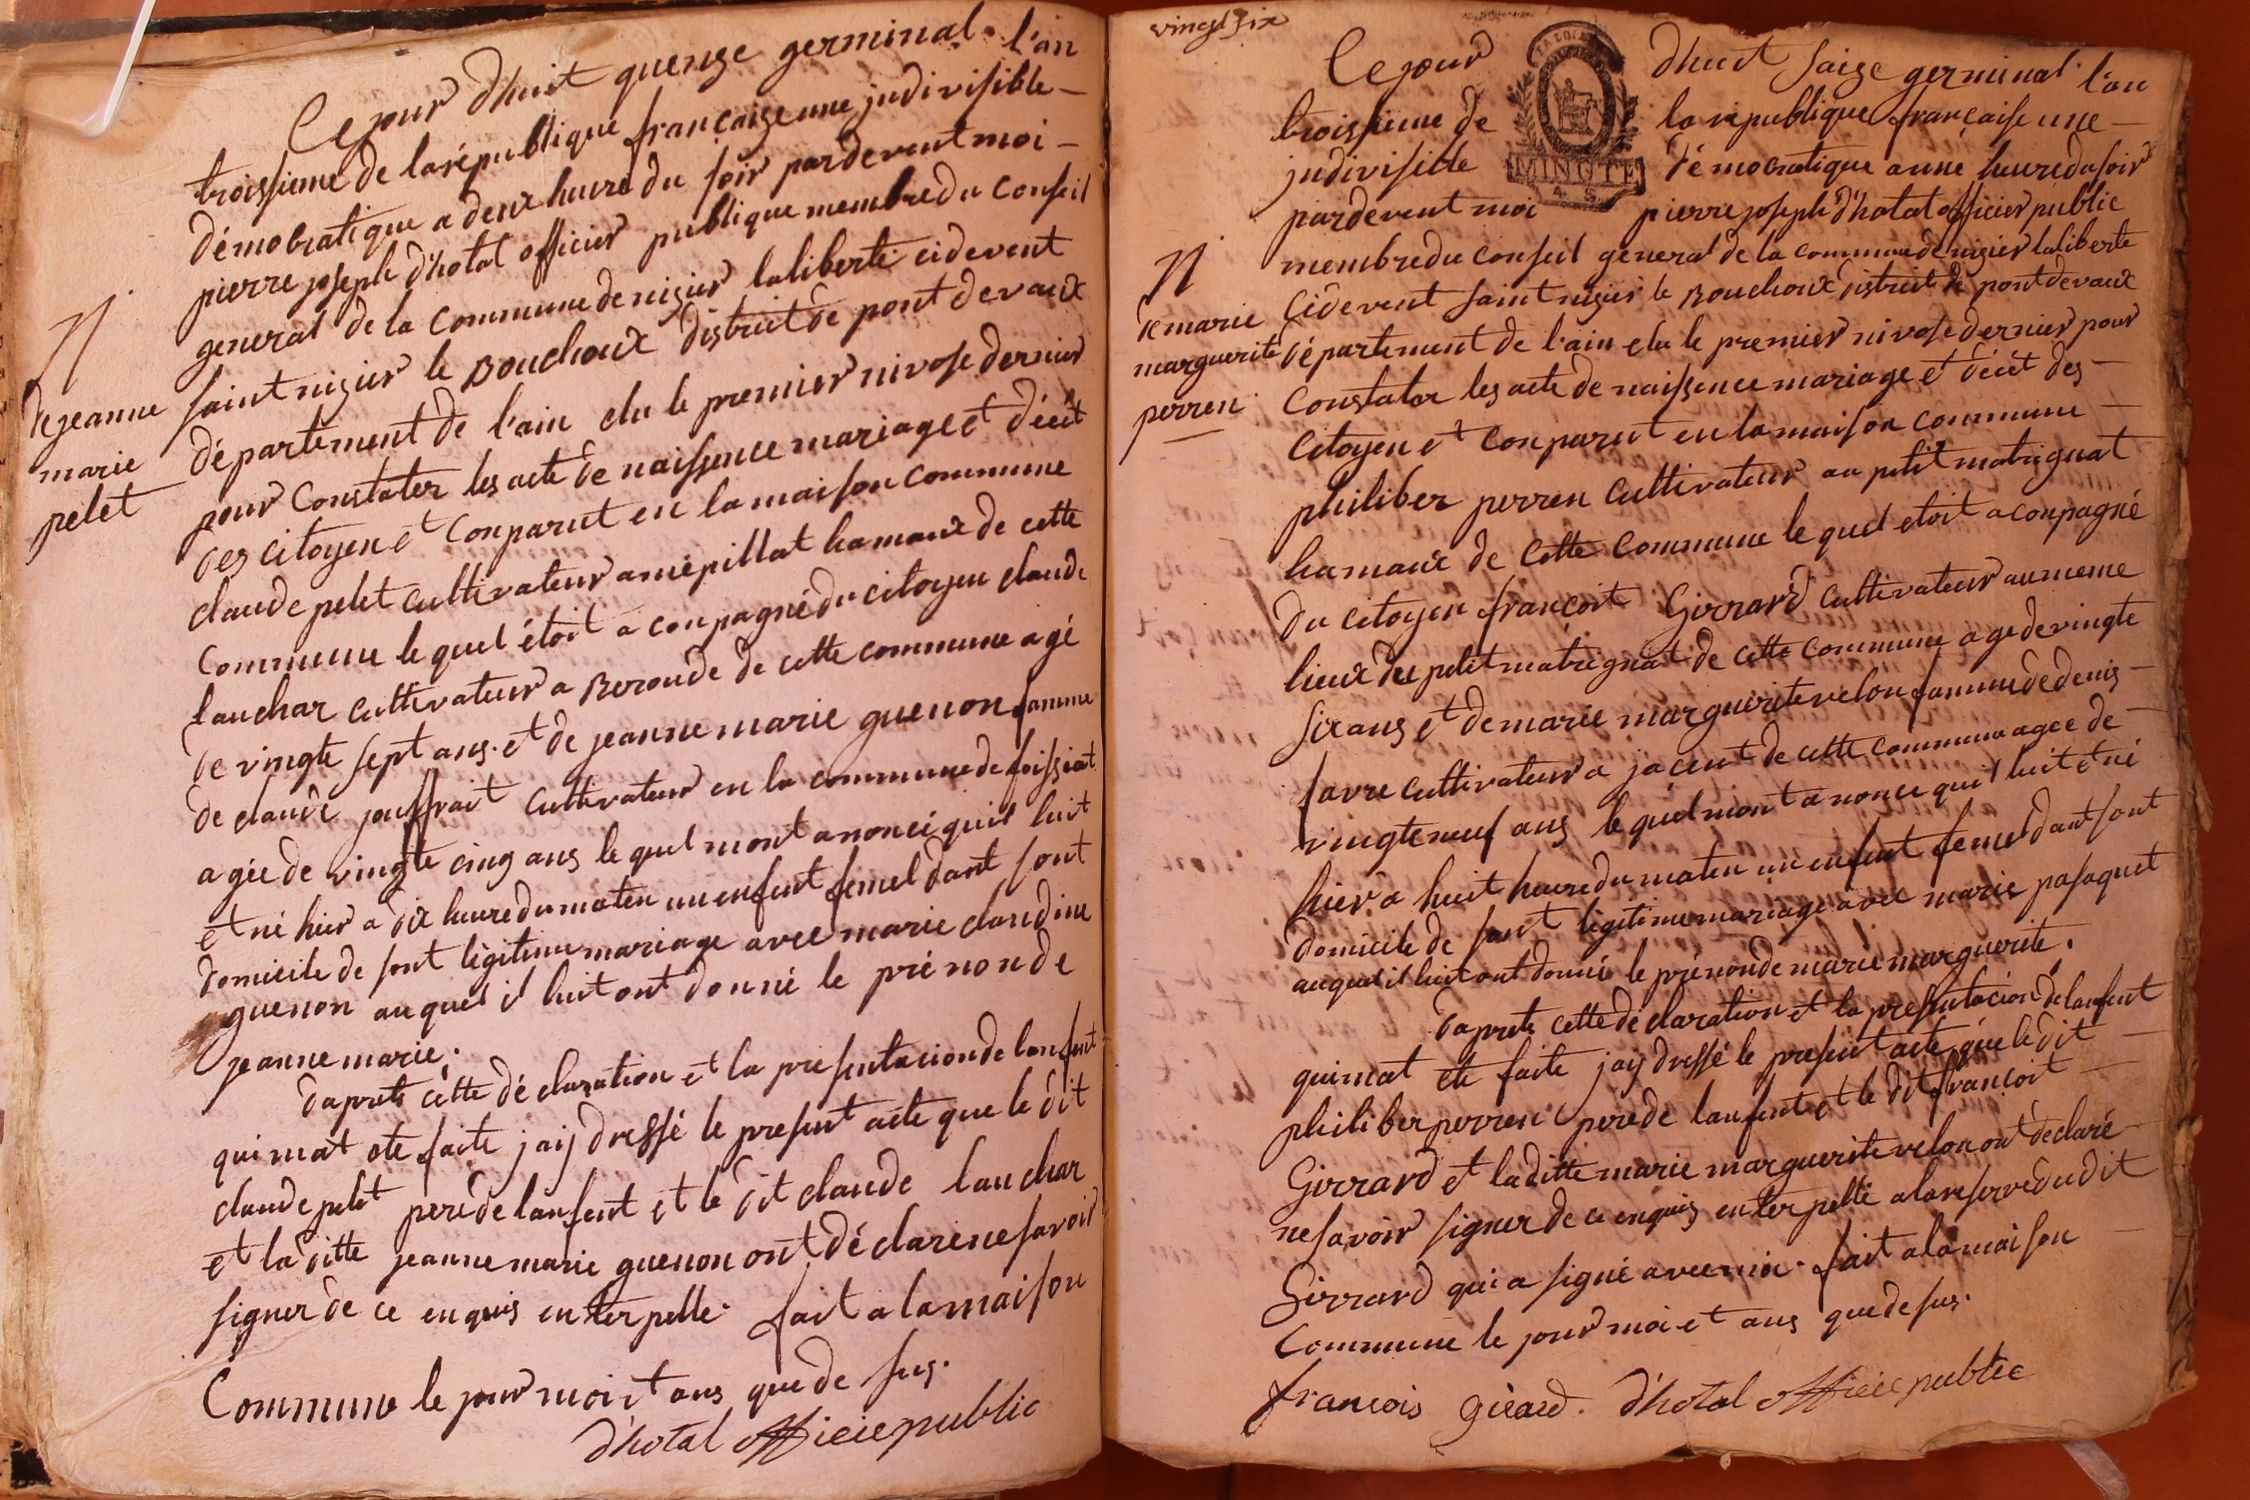 N
de jeanne
marie
pelet
Ce jour dhuit quenze germinal l'an
troissieme de la république françaize une judivisible -
démocratique a deux heure du soir pardevent moi -
pierre joseph d'hotal officier publique membre du conseil
general de la commune de nizier laliberté cidevent
saint nizier le Bouchoux district de pont devaux
département de l'ain elu le premier nivose dernier
pour constater les acte de naissence mariage et décét
des citoyen et conparut en la maison commune
claude pelet cultivateur a miépillat hamaux de cette
commune le quel étoit a conpagné du citoyen claude
lauchar cultivateur a Beronde de cette commune agé
de vingte sept ans. et de jeanne marie guenon famme
de claude jouffrait cultivateur en la commune de foissiat
agée de vingte cinq ans le quel mont anoncé quil luit
et né hier a dix heure du maten un enfent femel dant sont
domicile de sont légitime mariage avec marie claudine
guenon au quel il luit ont donné le prénon de
jeanne marie.
daprets cette déclaration et la presentacion de lanfent
qui mat ete faite jaij dressé le present acte que le dit
claude pelet pere de lanfent et le dit claude lauchar
et la ditte jeanne marie guenon ont déclaré ne savoir
signer de ce enquis enterpellé. fait a la maison
commune le jour moi et ans que de sus.
d'hotal officie public
vingt six
N
de marie
marguerite
perren
LA LOI
MINUTE
4. S.
Ce jour dhuit saize germinal l'an
troissieme de la république française une -
judivisible démocratique a une heure du soir
pardevent moi pierre joseph d'hotal officier public
membre du conseil general de la commune de nizier laliberté
cidevent saint nizier le Bouchoux district de pont devaux
département de l'ain elu le premier nivose dernier pour
constater les acte de naissence mariage et décét des -
citoyen et conparut en la maison commune -
philiber perren cultivateur au petit matrignat
hamaux de cette commune le quel etoit a conpagné
du citoyen françoit Girrard cultivateur au meme
lieux du petit matrignat de cette commune age de vingte
six ans et de marie marguerite velon famme de denis -
favre cultivateur a jacent de cette commune agee de -
vingte neuf ans le quel mont anonce quil luit et né
hier a huit heure du maten un enfent femel dant sont
domicile de sont légitime mariage avec marie pasaquet
au quel il luit ont donné le prénon de marie marguerite.
daprets cette déclaration et la presentacion de lanfent
qui mat ete faite jaij dressé le present acte que le dit -
philiber perren pere de lanfent et le dit françoit -
Girrard et la ditte marie marguerite velon ont déclaré -
ne savoir signer de ce enquis enterpellé a la reserve du dit
Girrard qui a signé avec moi. fait a la maison -
commune le jour moi et ans que de sus.
francois girard. d'hotal officie public